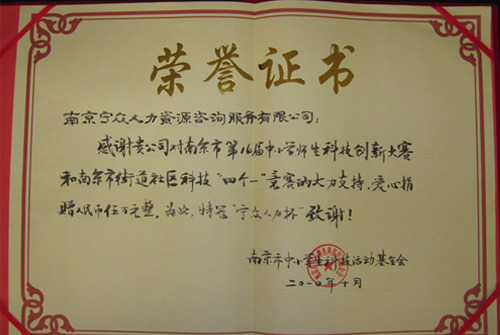 荣誉证书
南京宁众人力资源咨询服务有限公司：
感谢贵公司对南京市第16届中小学师生科技创新大赛
和南京市街道社区科技“四个一”竞赛的大力支持，爱心捐
赠人民币伍万元整。为此，特冠“宁众人力杯”致谢！
南京市中小学生科技活动基金会
二〇一〇年十月